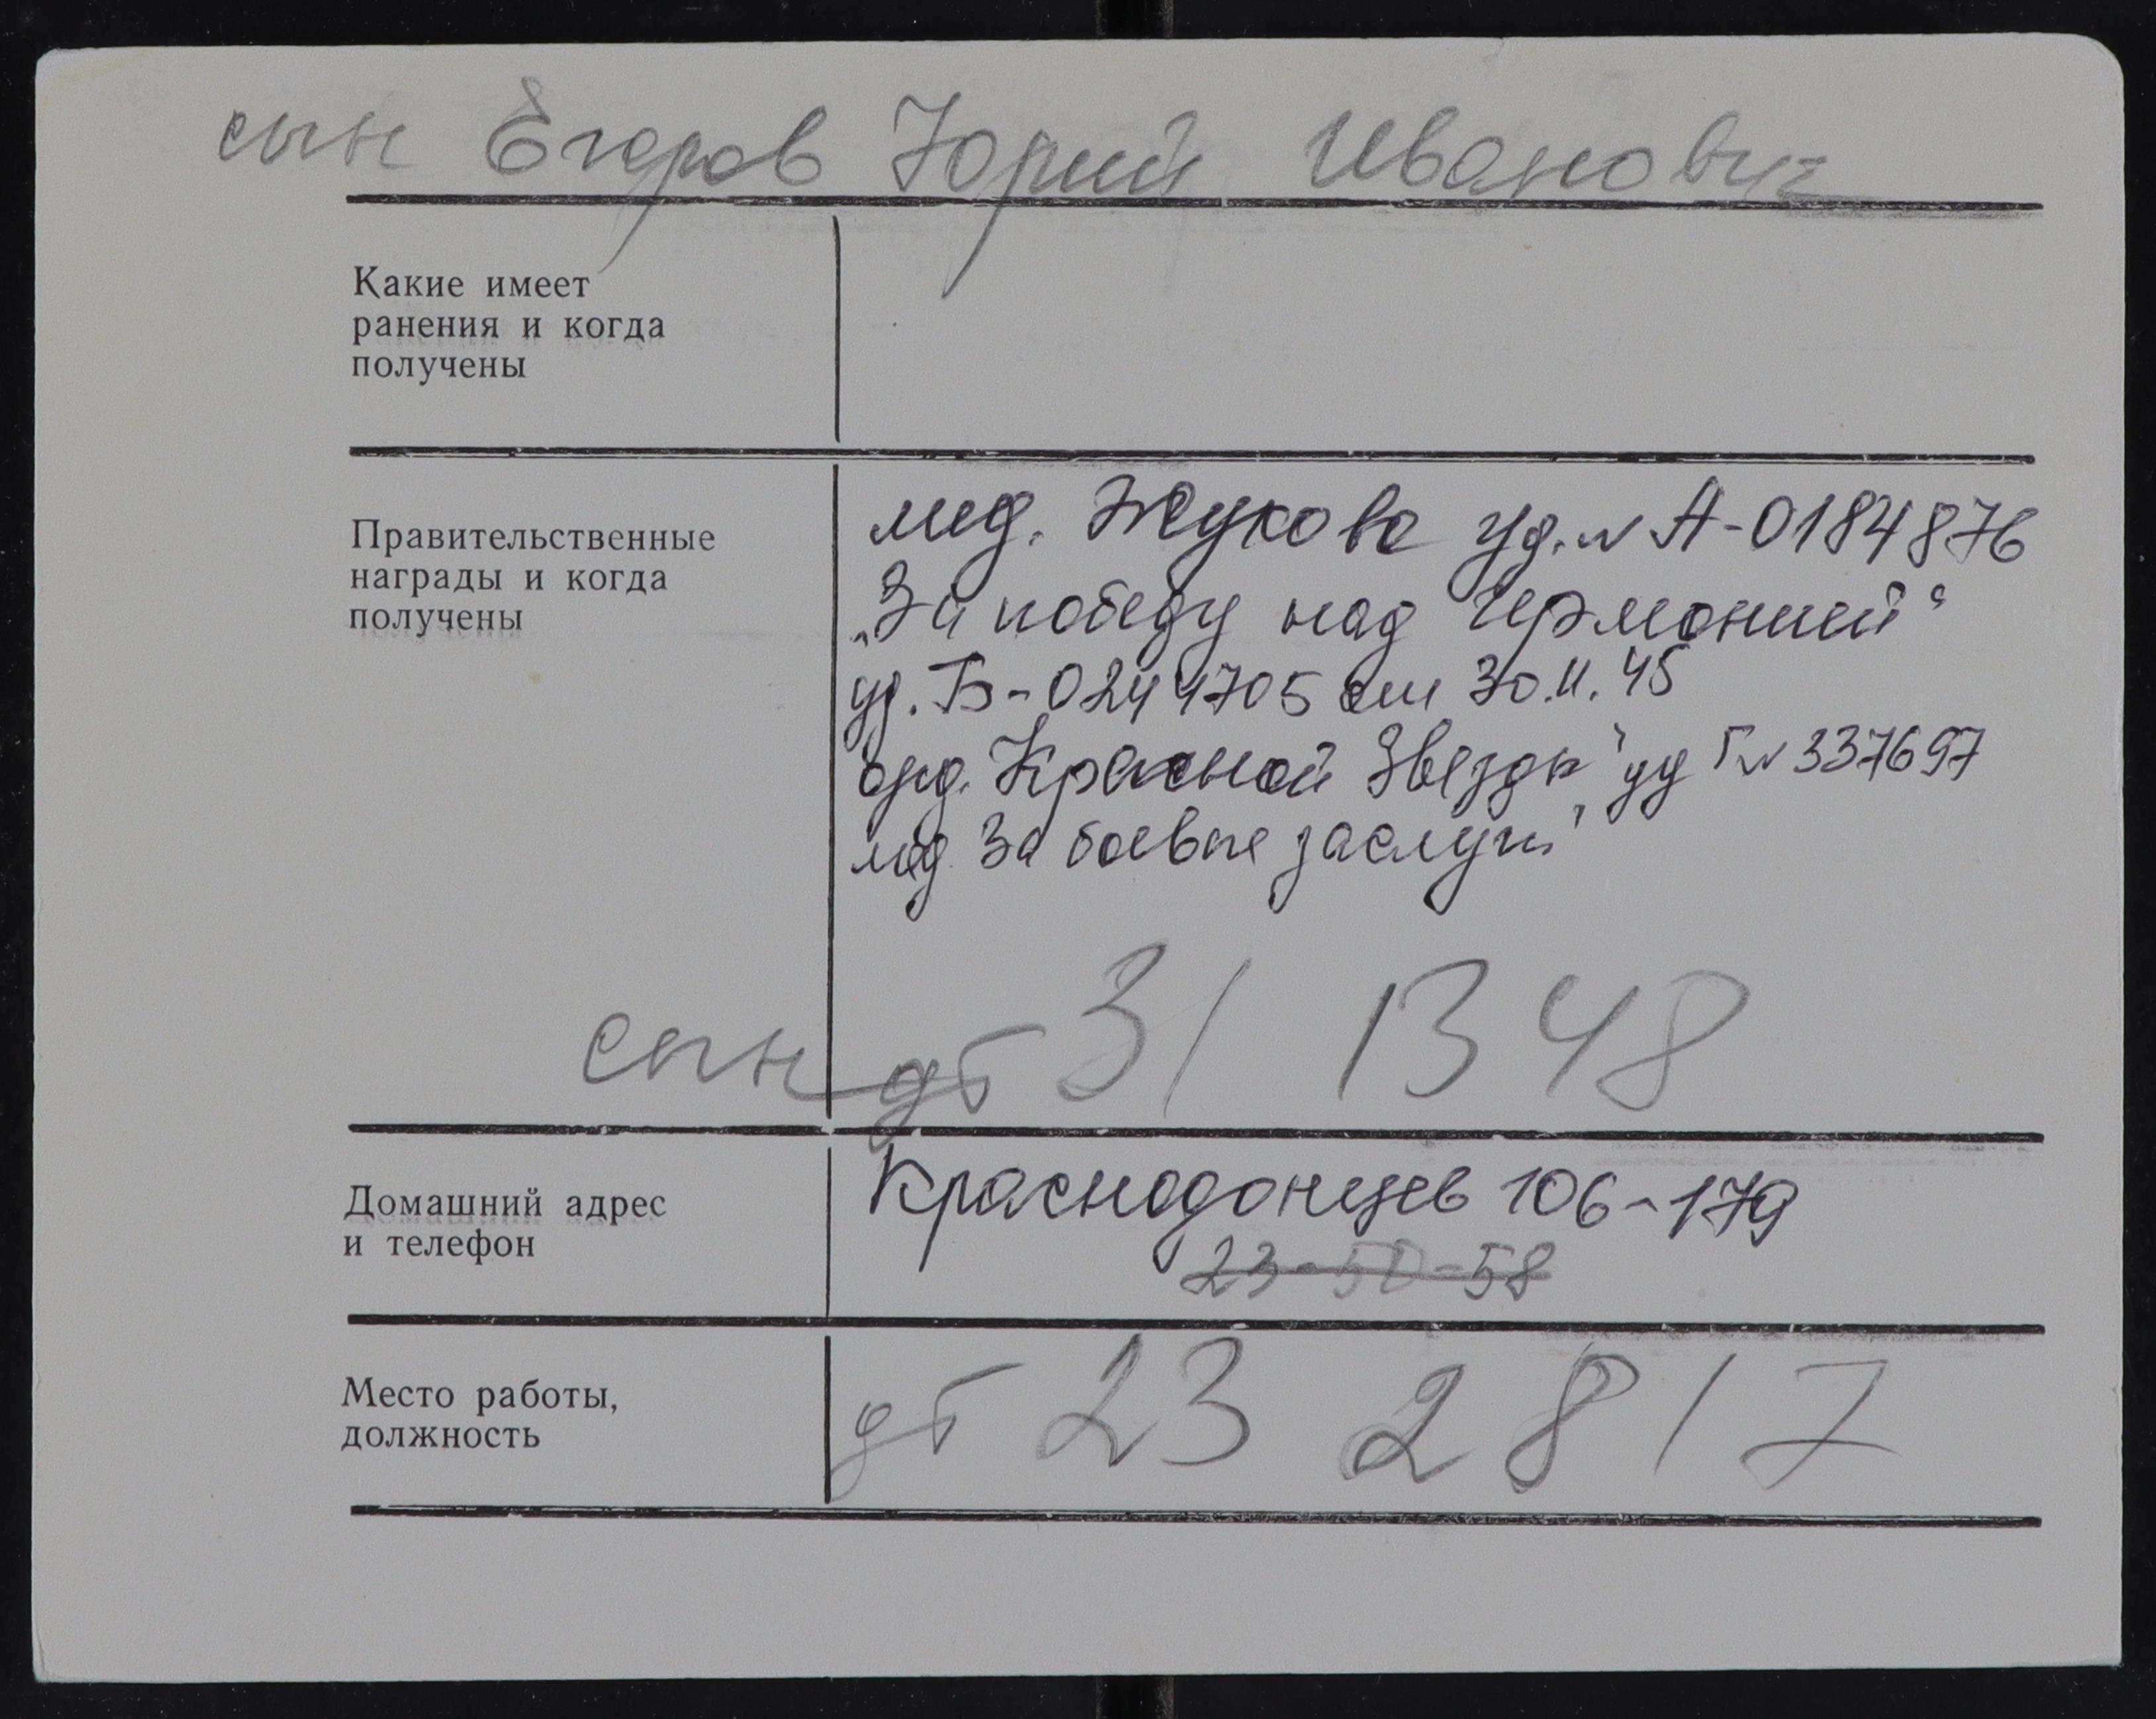 сын Егоров Юрий Иванович
Какие имеет
ранения и когда
получены
Правительственные
награды и когда
получены
мед. Жукова уд. № А-0184876
„За победу над Германией“
уд. Б-0244705 от 30.11.45
орд. Красной Звезды" уд Г№ 337697
мед. За боевые заслуги"
сын дт 31 13 48
Домашний адрес
и телефон
Краснодонцев 106-179
23-50-58
Место работы,
должность
дт 23 28 17